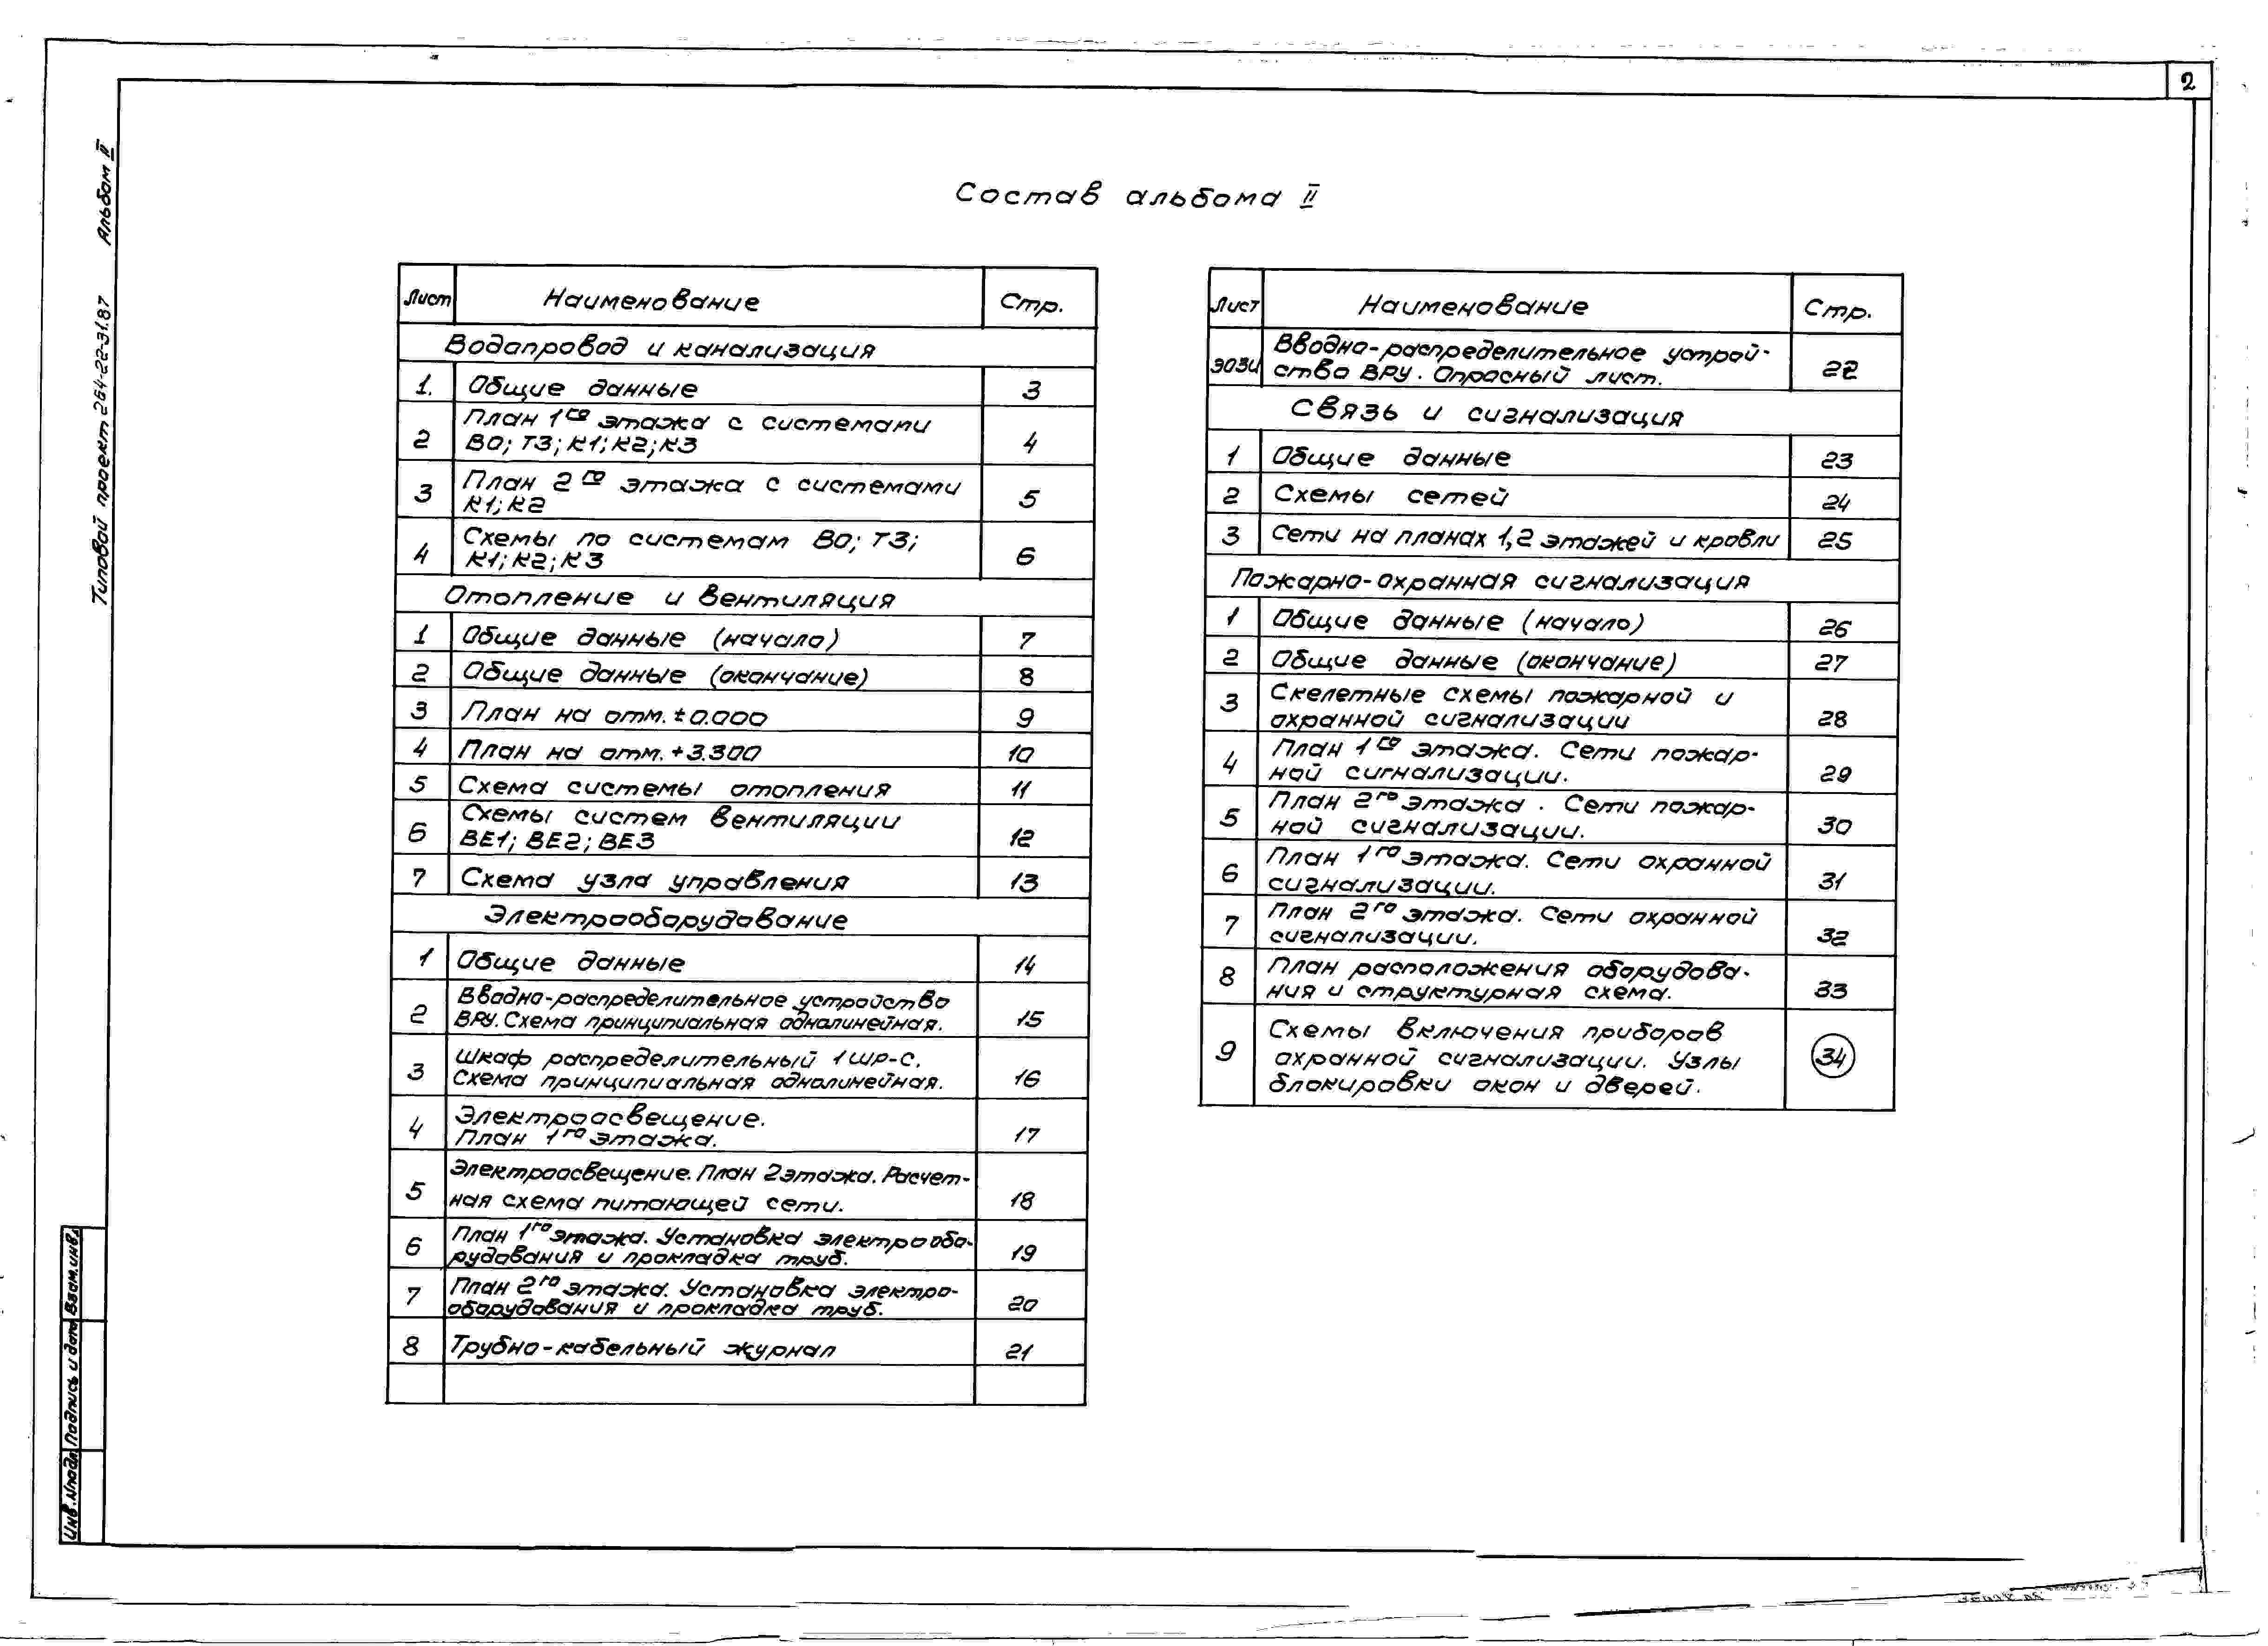 2
Альбом II
Типовой проект 264-22-31.87
Состав альбома II
Лист Наименование Стр.
Водопровод и канализация
1. Общие данные 3
План 1го этажа с системами
2 В0; Т3; К1; К2; К3 4
План 2го этажа с системами
3 К1; К2 5
Схемы по системам В0; Т3;
4 К1; К2; К3 6
Отопление и вентиляция
1 Общие данные (начало) 7
2 Общие данные (окончание) 8
3 План на отм. ±0.000 9
4 План на отм. +3.300 10
5 Схема системы отопления 11
Схемы систем вентиляции
6 ВЕ1; ВЕ2; ВЕ3 12
7 Схема узла управления 13
Электрооборудование
1 Общие данные 14
Вводно-распределительное устройство
2 ВРУ. Схема принципиальная однолинейная. 15
Шкаф распределительный 1ШР-С.
3 Схема принципиальная однолинейная. 16
Электроосвещение.
4 План 1го этажа. 17
Электроосвещение. План 2 этажа. Расчет-
5 ная схема питающей сети. 18
План 1го этажа. Установка электрообо-
6 рудования и прокладка труб. 19
План 2го этажа. Установка электро-
7 оборудования и прокладка труб. 20
8 Трубно-кабельный журнал 21
Лист Наименование Стр.
Вводно-распределительное устрой-
ЭОЗИ ство ВРУ. Опросный лист. 22
Связь и сигнализация
1 Общие данные 23
2 Схемы сетей 24
3 Сети на планах 1,2 этажей и кровли 25
Пожарно-охранная сигнализация
1 Общие данные (начало) 26
2 Общие данные (окончание) 27
Скелетные схемы пожарной и
3 охранной сигнализации 28
План 1го этажа. Сети пожар-
4 ной сигнализации. 29
План 2го этажа. Сети пожар-
5 ной сигнализации. 30
План 1го этажа. Сети охранной
6 сигнализации. 31
План 2го этажа. Сети охранной
7 сигнализации. 32
План расположения оборудова-
8 ния и структурная схема. 33
Схемы включения приборов
9 охранной сигнализации. Узлы 34
блокировки окон и дверей.
Взам. инв.
Подпись и дата
Инв. N подл.